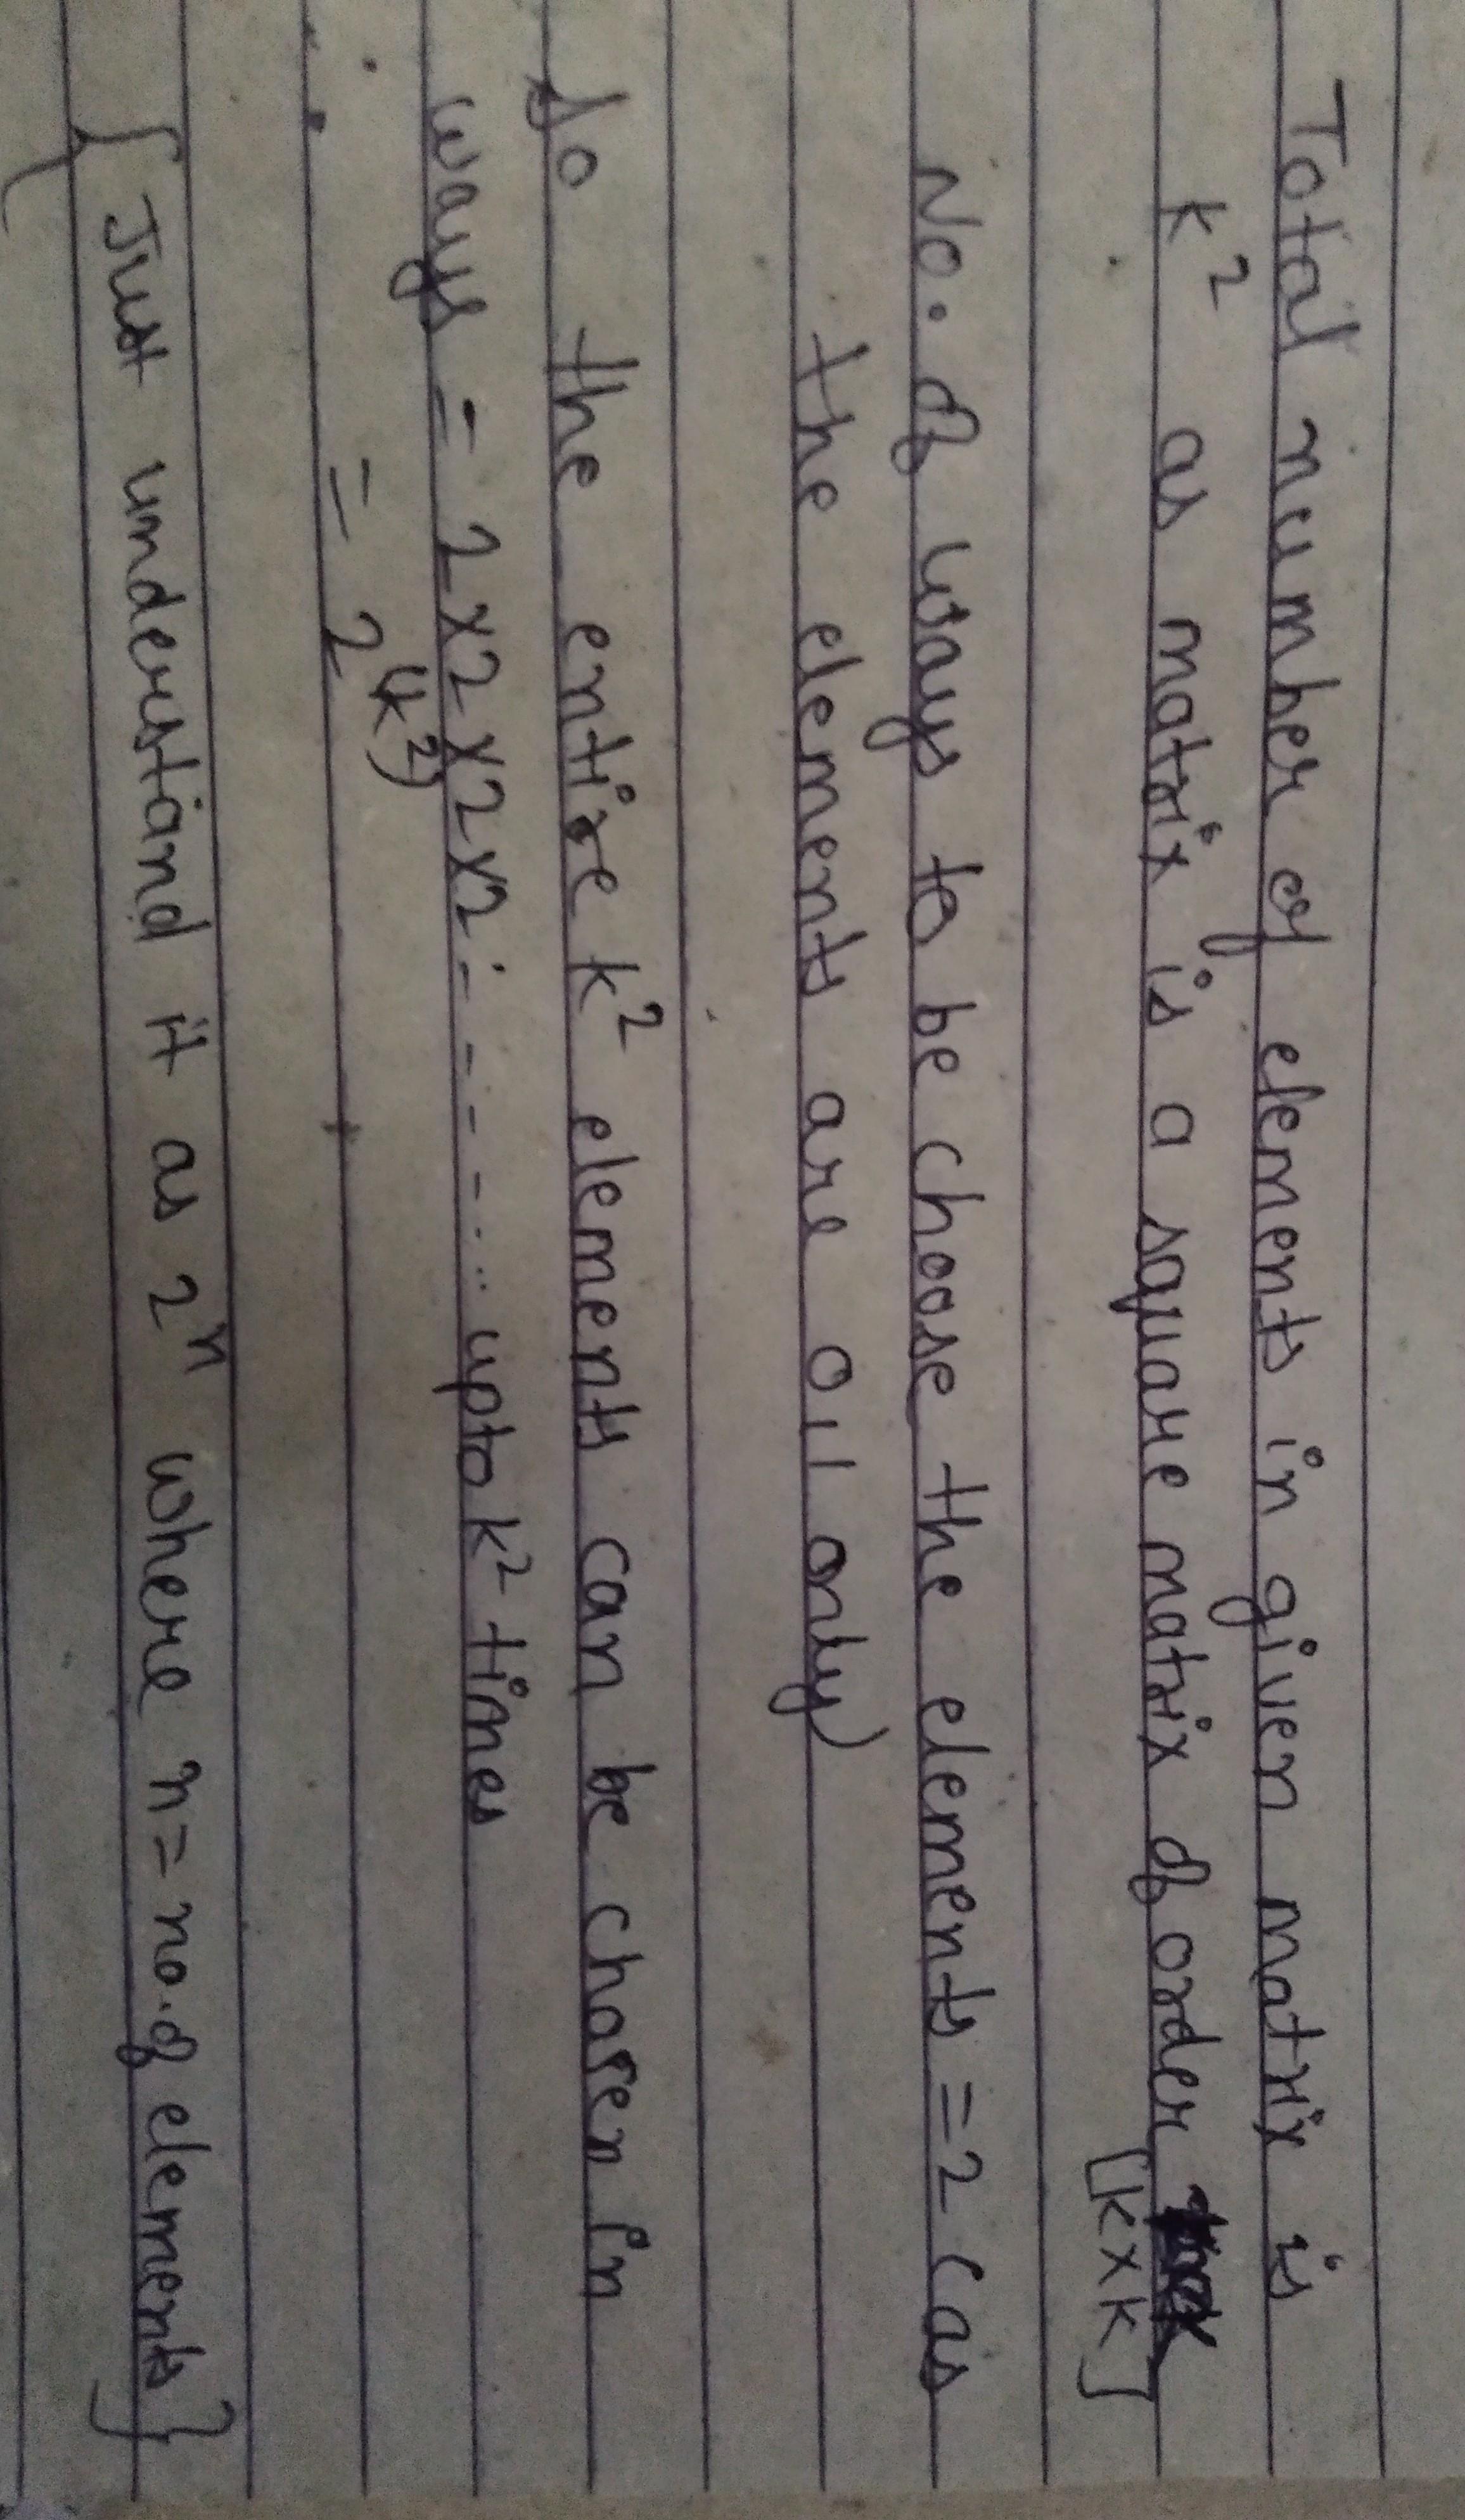 Total number of elements in given matrix is
k² as matrix is a square matrix of order
[k×k]
No. of ways to be choose the elements = 2 (as
the elements are 0,1 only)
So the entire k² elements can be chosen in
ways = 2×2×2×2 - - - - - ... upto k² times
= 2^(k²)
{Just understand it as 2ⁿ where n = no. of elements}